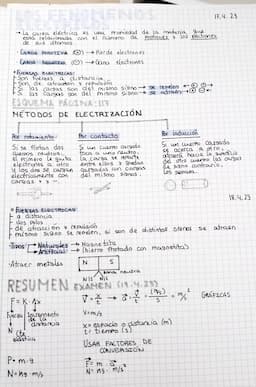 LOS FENÓMENOS
17.4.23
• La carga eléctrica es una propiedad de la materia. Que
está relacionada con el número de protones y los electrones
de sus átomos.
CARGA POSITIVA (+) → Pierde electrones
CARGA NEGATIVA (-) → Gana electrones
• FUERZAS ELÉCTRICAS:
Son fuerzas a distancia
Son de atracción y repulsión
Si las cargas son del mismo signo → se repelen
Si las cargas son del mismo signo → se
ESQUEMA PÁGINA:117
MÉTODOS DE ELECTRIZACIÓN
Por rozamiento
Por contacto
Por inducción
Si se frotan dos
cuerpos neutros,
el primero le quita
electrones a otro
y los dos se cargan
eléctricamente con
cargas + y -
Si un cuerpo cargado
toca a uno neutro,
la carga se reparte
entre ellos y quedan
cargados con cargas
del mismo signo.
Si un cuerpo cargado
se acerca a otro,
del otro cuerpo las cargas
de signo contrario,
18.4.23
• FUERZAS ELÉCTRICAS
a distancia
dos polos
de atracción y repulsión
mismo signo se repelen, si son de distintos signos se atraen
• Tipos
Naturales → Magnetita
Artificiales → (hierro frotado con magnetita)
• Atraer metales
N S
zona neutra
N S N S
RESUMEN EXAMEN (19.4.23)
F = K · Δx
GRÁFICAS
Fuerza
Incremento
de la
distancia
N
Cte
elástica
V = m/s
x = espacio o distancia (m)
t = tiempo (s)
USAR FACTORES DE
CONVERSIÓN
P = m · g
N = kg · m/s²
F = m · a
N = kg · m/s²